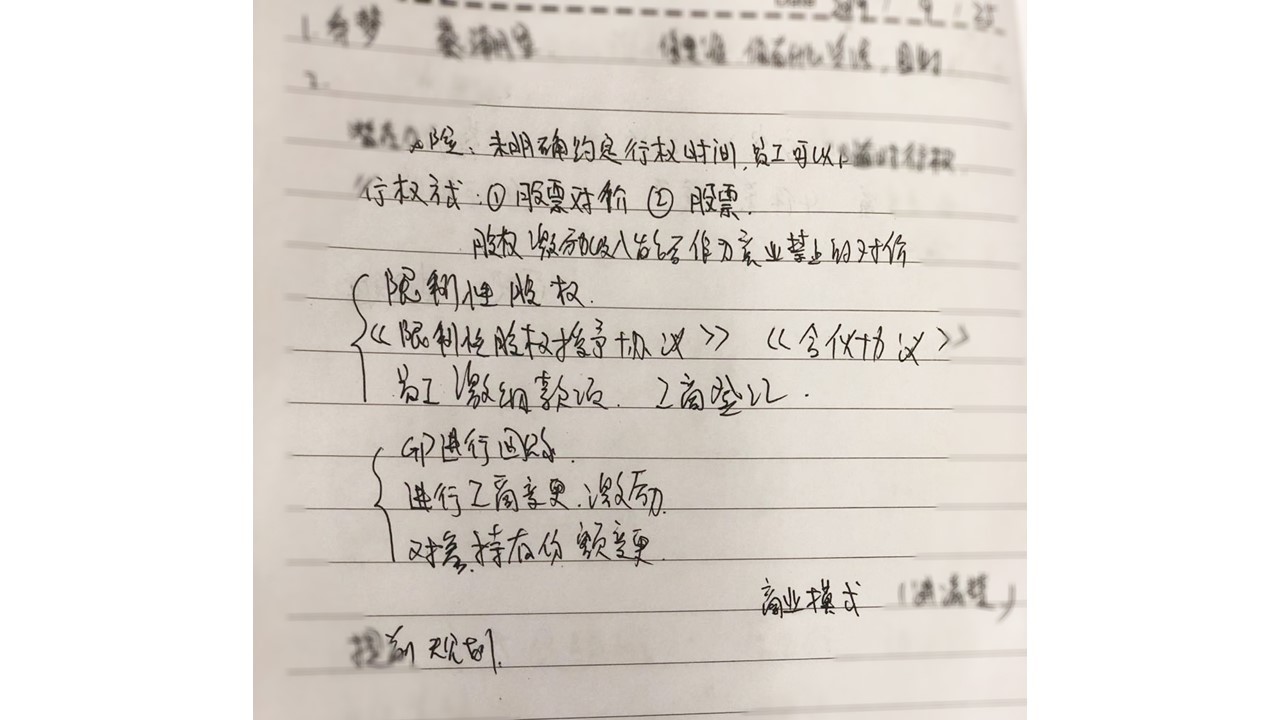 1.
2.
风险、未明确约定行权时间,员工可以随时行权
行权方式:①股票对价 ②股票.
股权激励收入能否作为竞业禁止的对价
限制性股权.
《限制性股权授予协议》 《合伙协议》
员工缴纳款项. 工商登记.
GP进行回购.
进行工商变更.激励
对象.持有份额变更.
商业模式
提前规划.